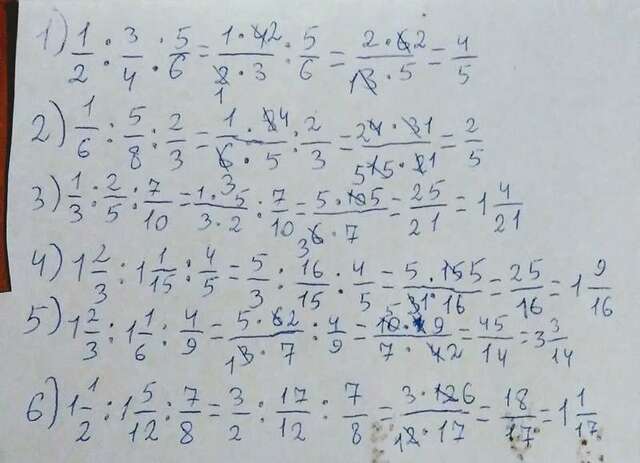 1) 1/2 : 3/4 : 5/6 = 1·42/2·3 1 : 5/6 = 2·62/13·5 = 4/5
2) 1/6 : 5/8 : 2/3 = 1·84/6·5 : 2/3 = 24·31/515·21 = 2/5
3) 1/3 : 2/5 : 7/10 = 1·5/3·2 : 7/10 = 5·105/36·7 = 25/21 = 1 4/21
4) 1 2/3 : 1 1/15 : 4/5 = 5/3 : 16/15 : 4/5 = 5·155/31·16 = 25/16 = 1 9/16
5) 1 2/3 : 1 1/6 : 4/9 = 5·62/13·7 : 4/9 = 510·9/7·42 = 45/14 = 3 3/14
6) 1 1/2 : 1 5/12 : 7/8 = 3/2 : 17/12 : 7/8 = 3·126/12·17 = 18/17 = 1 1/17